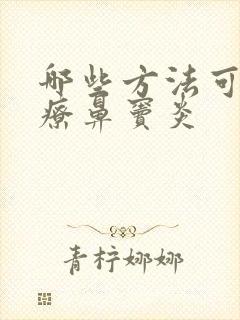 哪些方法可
疗鼻窦炎
青柠娜娜